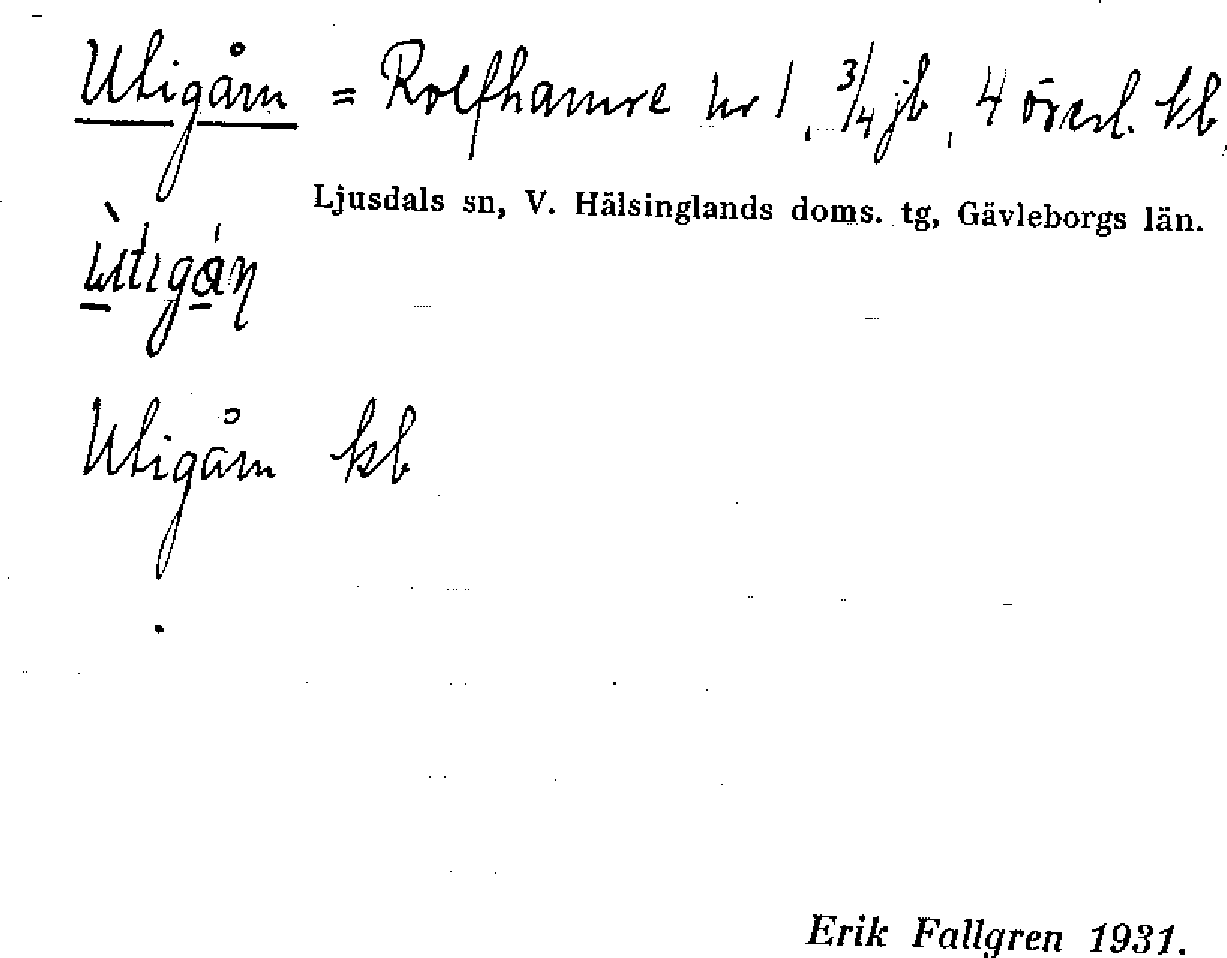 Utigårn = Rolfhamre nr 1, 3/4 jb, 4 överl. kb,
Ljusdals sn, V. Hälsinglands doms. tg, Gävleborgs län.
Utigårn kb
Erik Fallgren 1931.